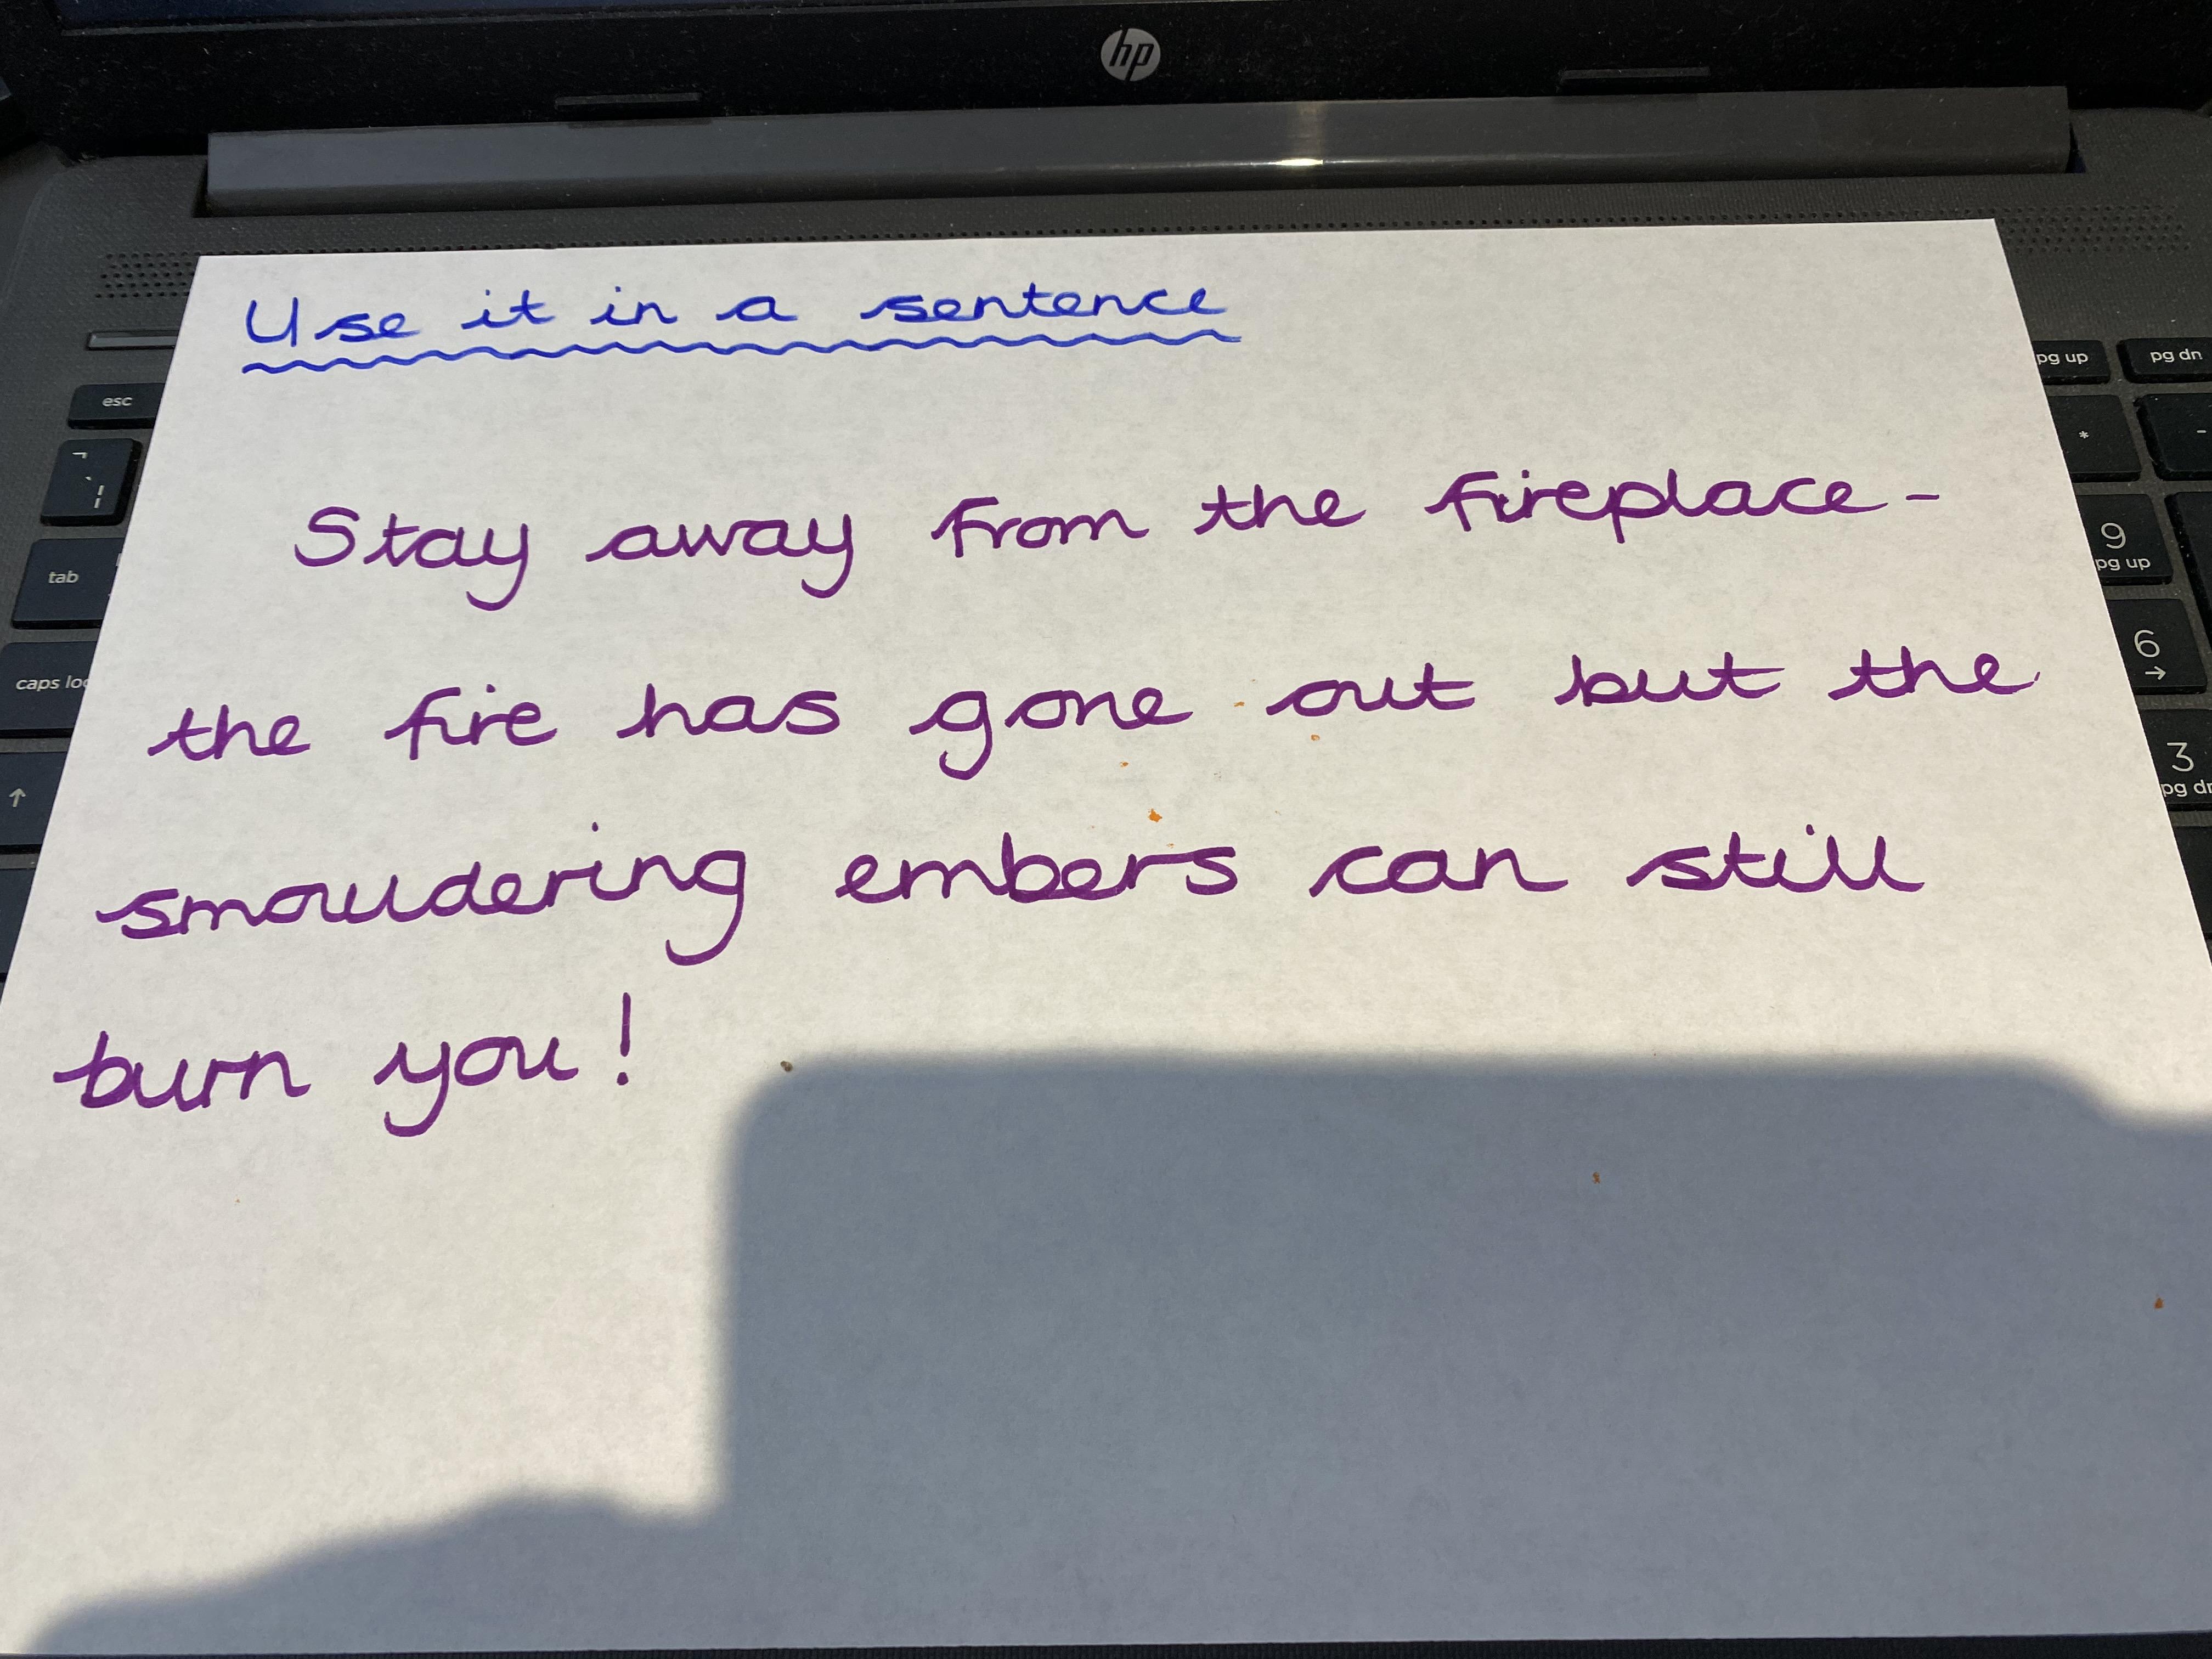 hp
Use it in a sentence
Stay away from the fireplace-
the fire has gone out but the
smouldering embers can still
burn you!
esc
tab
caps loc
pg up
pg dn
*
-
9
pg up
6
3
pg dn